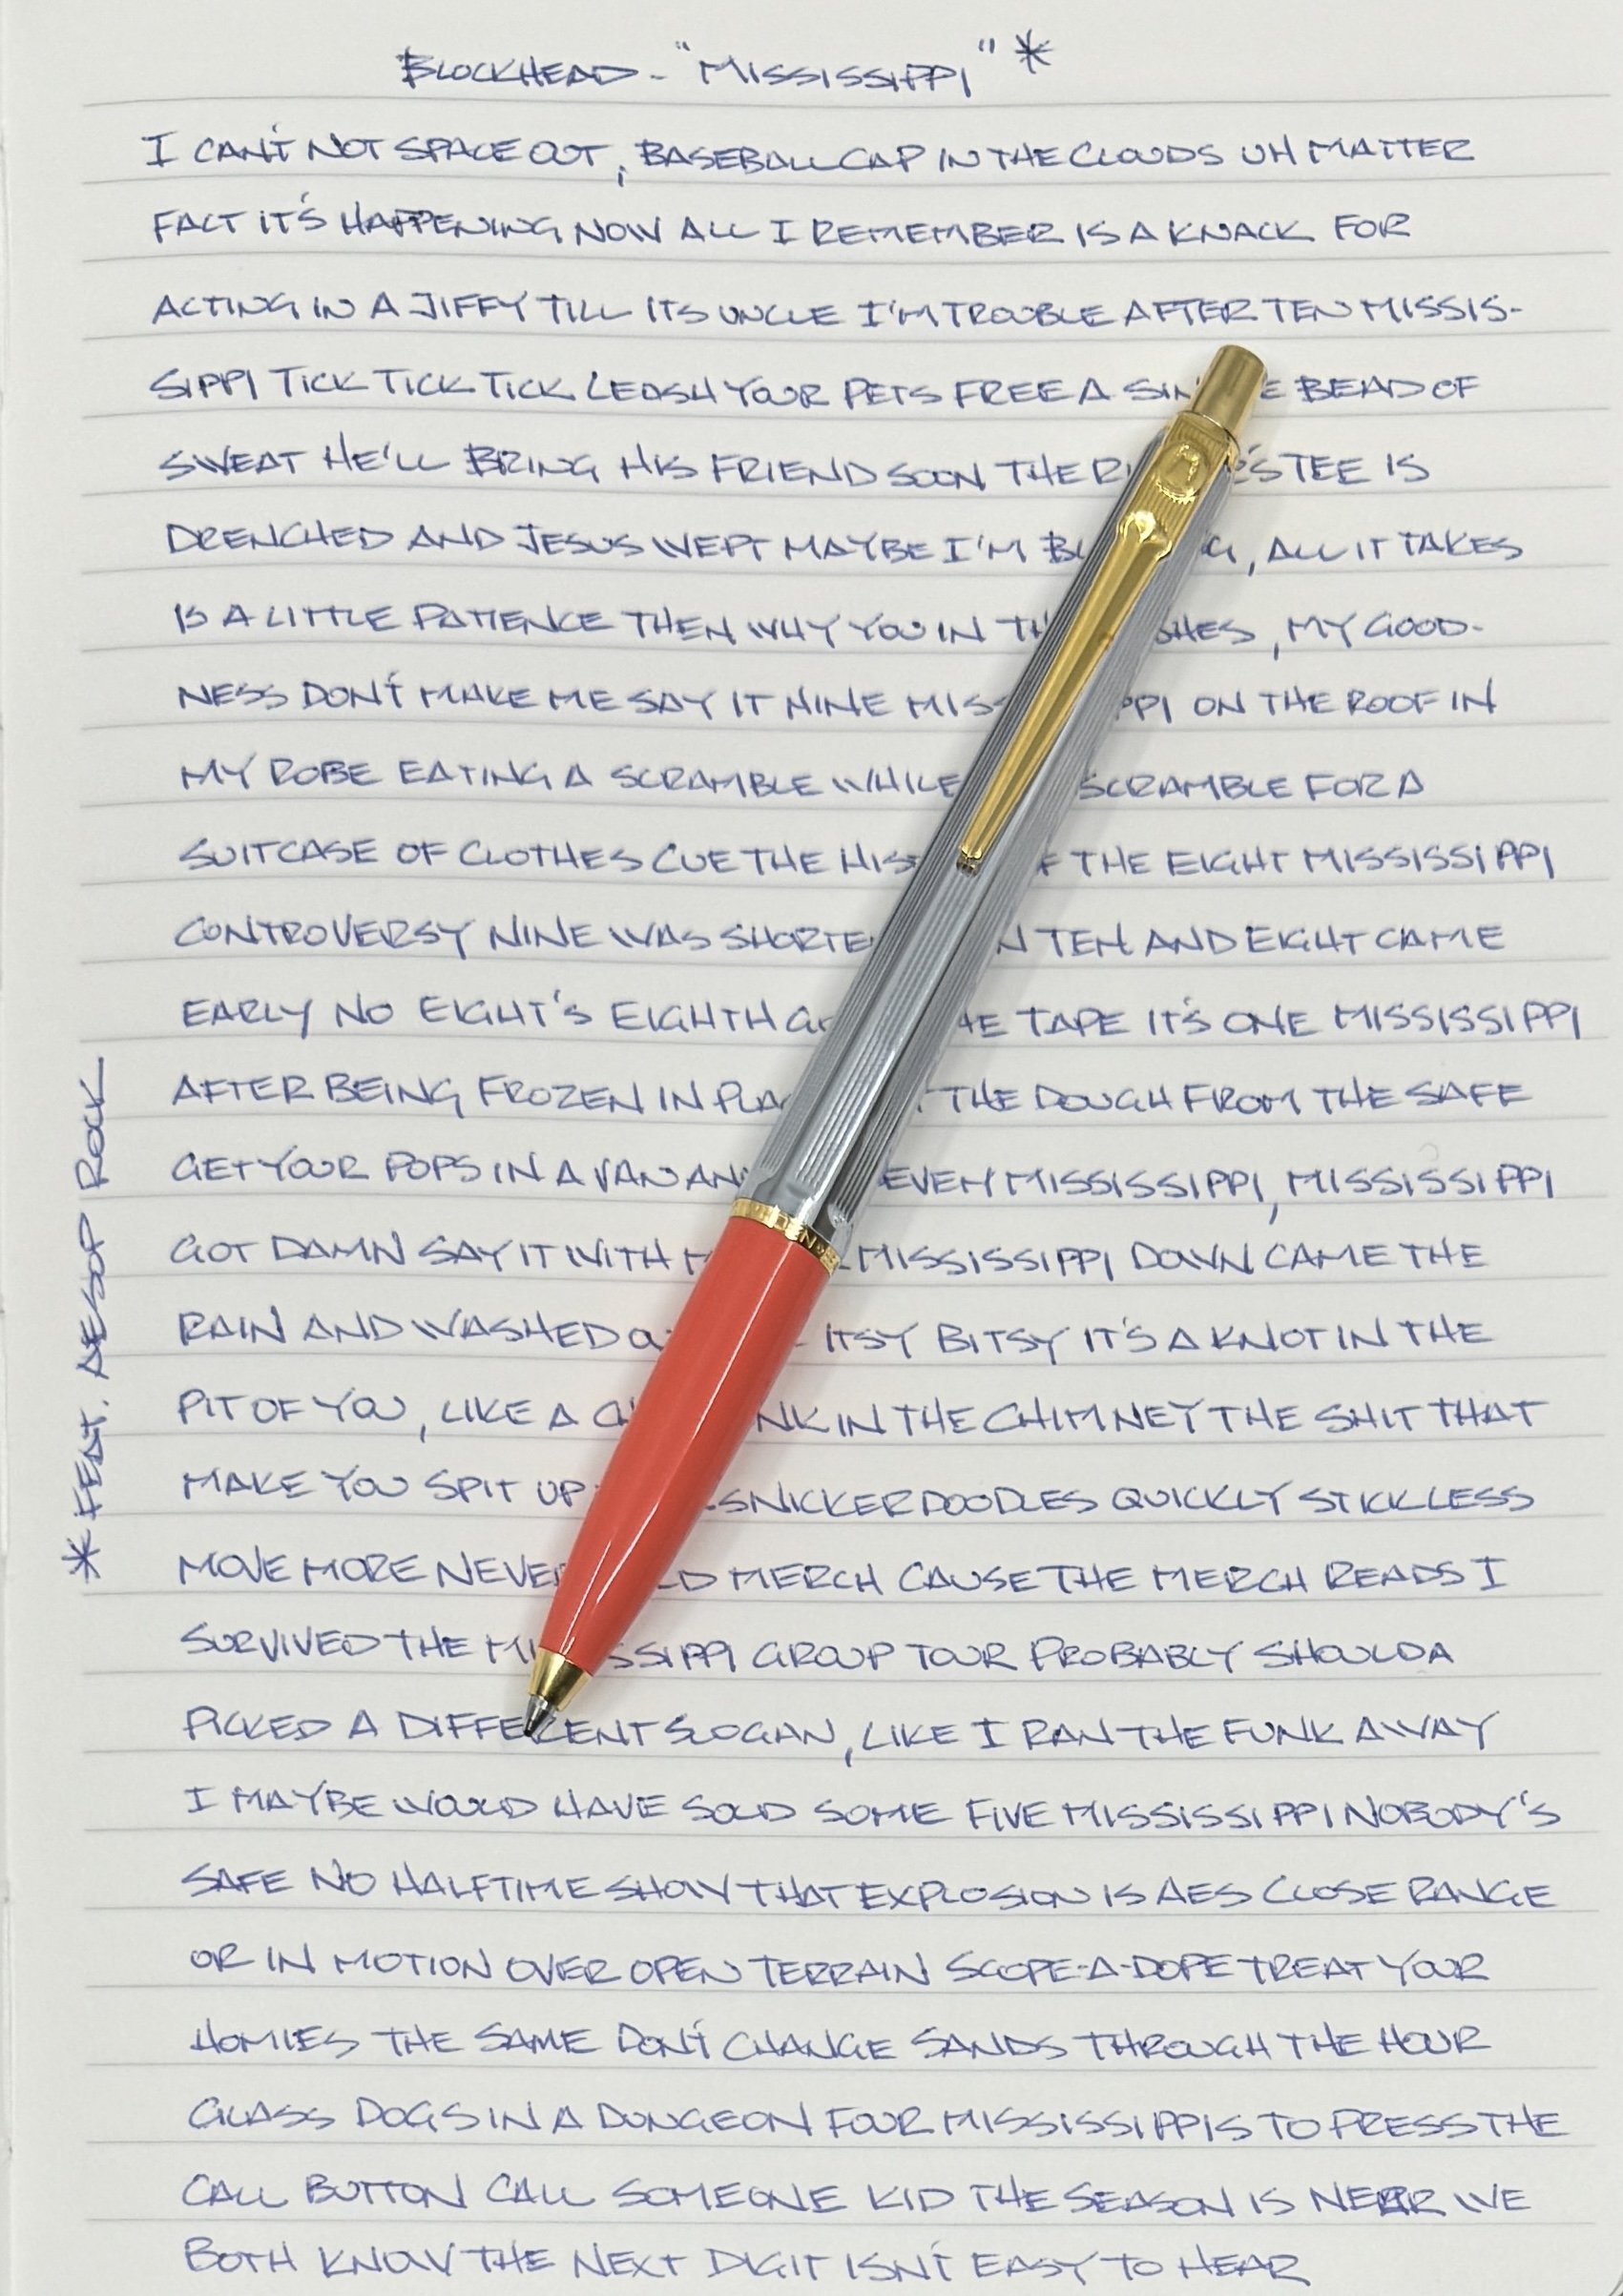 BLOCKHEAD - "MISSISSIPPI" *
I CAN'T NOT SPACE OUT, BASEBALL CAP IN THE CLOUDS UH MATTER
FACT IT'S HAPPENING NOW ALL I REMEMBER IS A KNACK FOR
ACTING IN A JIFFY TILL ITS UNCLE I'M TROUBLE AFTER TEN MISSIS-
SIPPI TICK TICK TICK LEASH YOUR PETS FREE A BEAD OF
SWEAT HE'LL BRING HIS FRIEND SOON THE TEE IS
DRENCHED AND JESUS WEPT MAYBE I'M , ALL IT TAKES
IS A LITTLE PATIENCE THEN WHY YOU IN , MY GOOD-
NESS DON'T MAKE ME SAY IT NINE MISS PPI ON THE ROOF IN
MY ROBE EATING A SCRAMBLE WHILE SCRAMBLE FOR A
SUITCASE OF CLOTHES CUE THE THE EIGHT MISSISSIPPI
CONTROVERSY NINE WAS TEN AND EIGHT CAME
EARLY NO EIGHT'S EIGHTH TAPE IT'S ONE MISSISSIPPI
AFTER BEING FROZEN IN THE DOUGH FROM THE SAFE
GET YOUR POPS IN A VAN EVEN MISSISSIPPI, MISSISSIPPI
GOT DAMN SAY IT WITH MISSISSIPPI DOWN CAME THE
RAIN AND WASHED ITSY BITSY IT'S A KNOT IN THE
PIT OF YOU, LIKE A IN THE CHIMNEY THE SHIT THAT
MAKE YOU SPIT UP SNICKERDOODLES QUICKLY STICK LESS
MOVE MORE MERCH CAUSE THE MERCH READS I
SURVIVED THE MI SSIPPI GROUP TOUR PROBABLY SHOULDA
PICKED A DIFFERENT SLOGAN, LIKE I RAN THE FUNK AWAY
I MAYBE WOULD HAVE SOLD SOME FIVE MISSISSIPPI NOBODY'S
SAFE NO HALFTIME SHOW THAT EXPLOSION IS AES CLOSE RANGE
OR IN MOTION OVER OPEN TERRAIN SCOPE-A-DOPE TREAT YOUR
HOMIES THE SAME DON'T CHANGE SANDS THROUGH THE HOUR
GLASS DOGS IN A DUNGEON FOUR MISSISSIPPIS TO PRESS THE
CALL BUTTON CALL SOMEONE KID THE SEASON IS NEAR WE
BOTH KNOW THE NEXT DIGIT ISN'T EASY TO HEAR
* FEAT. AESOP ROCK